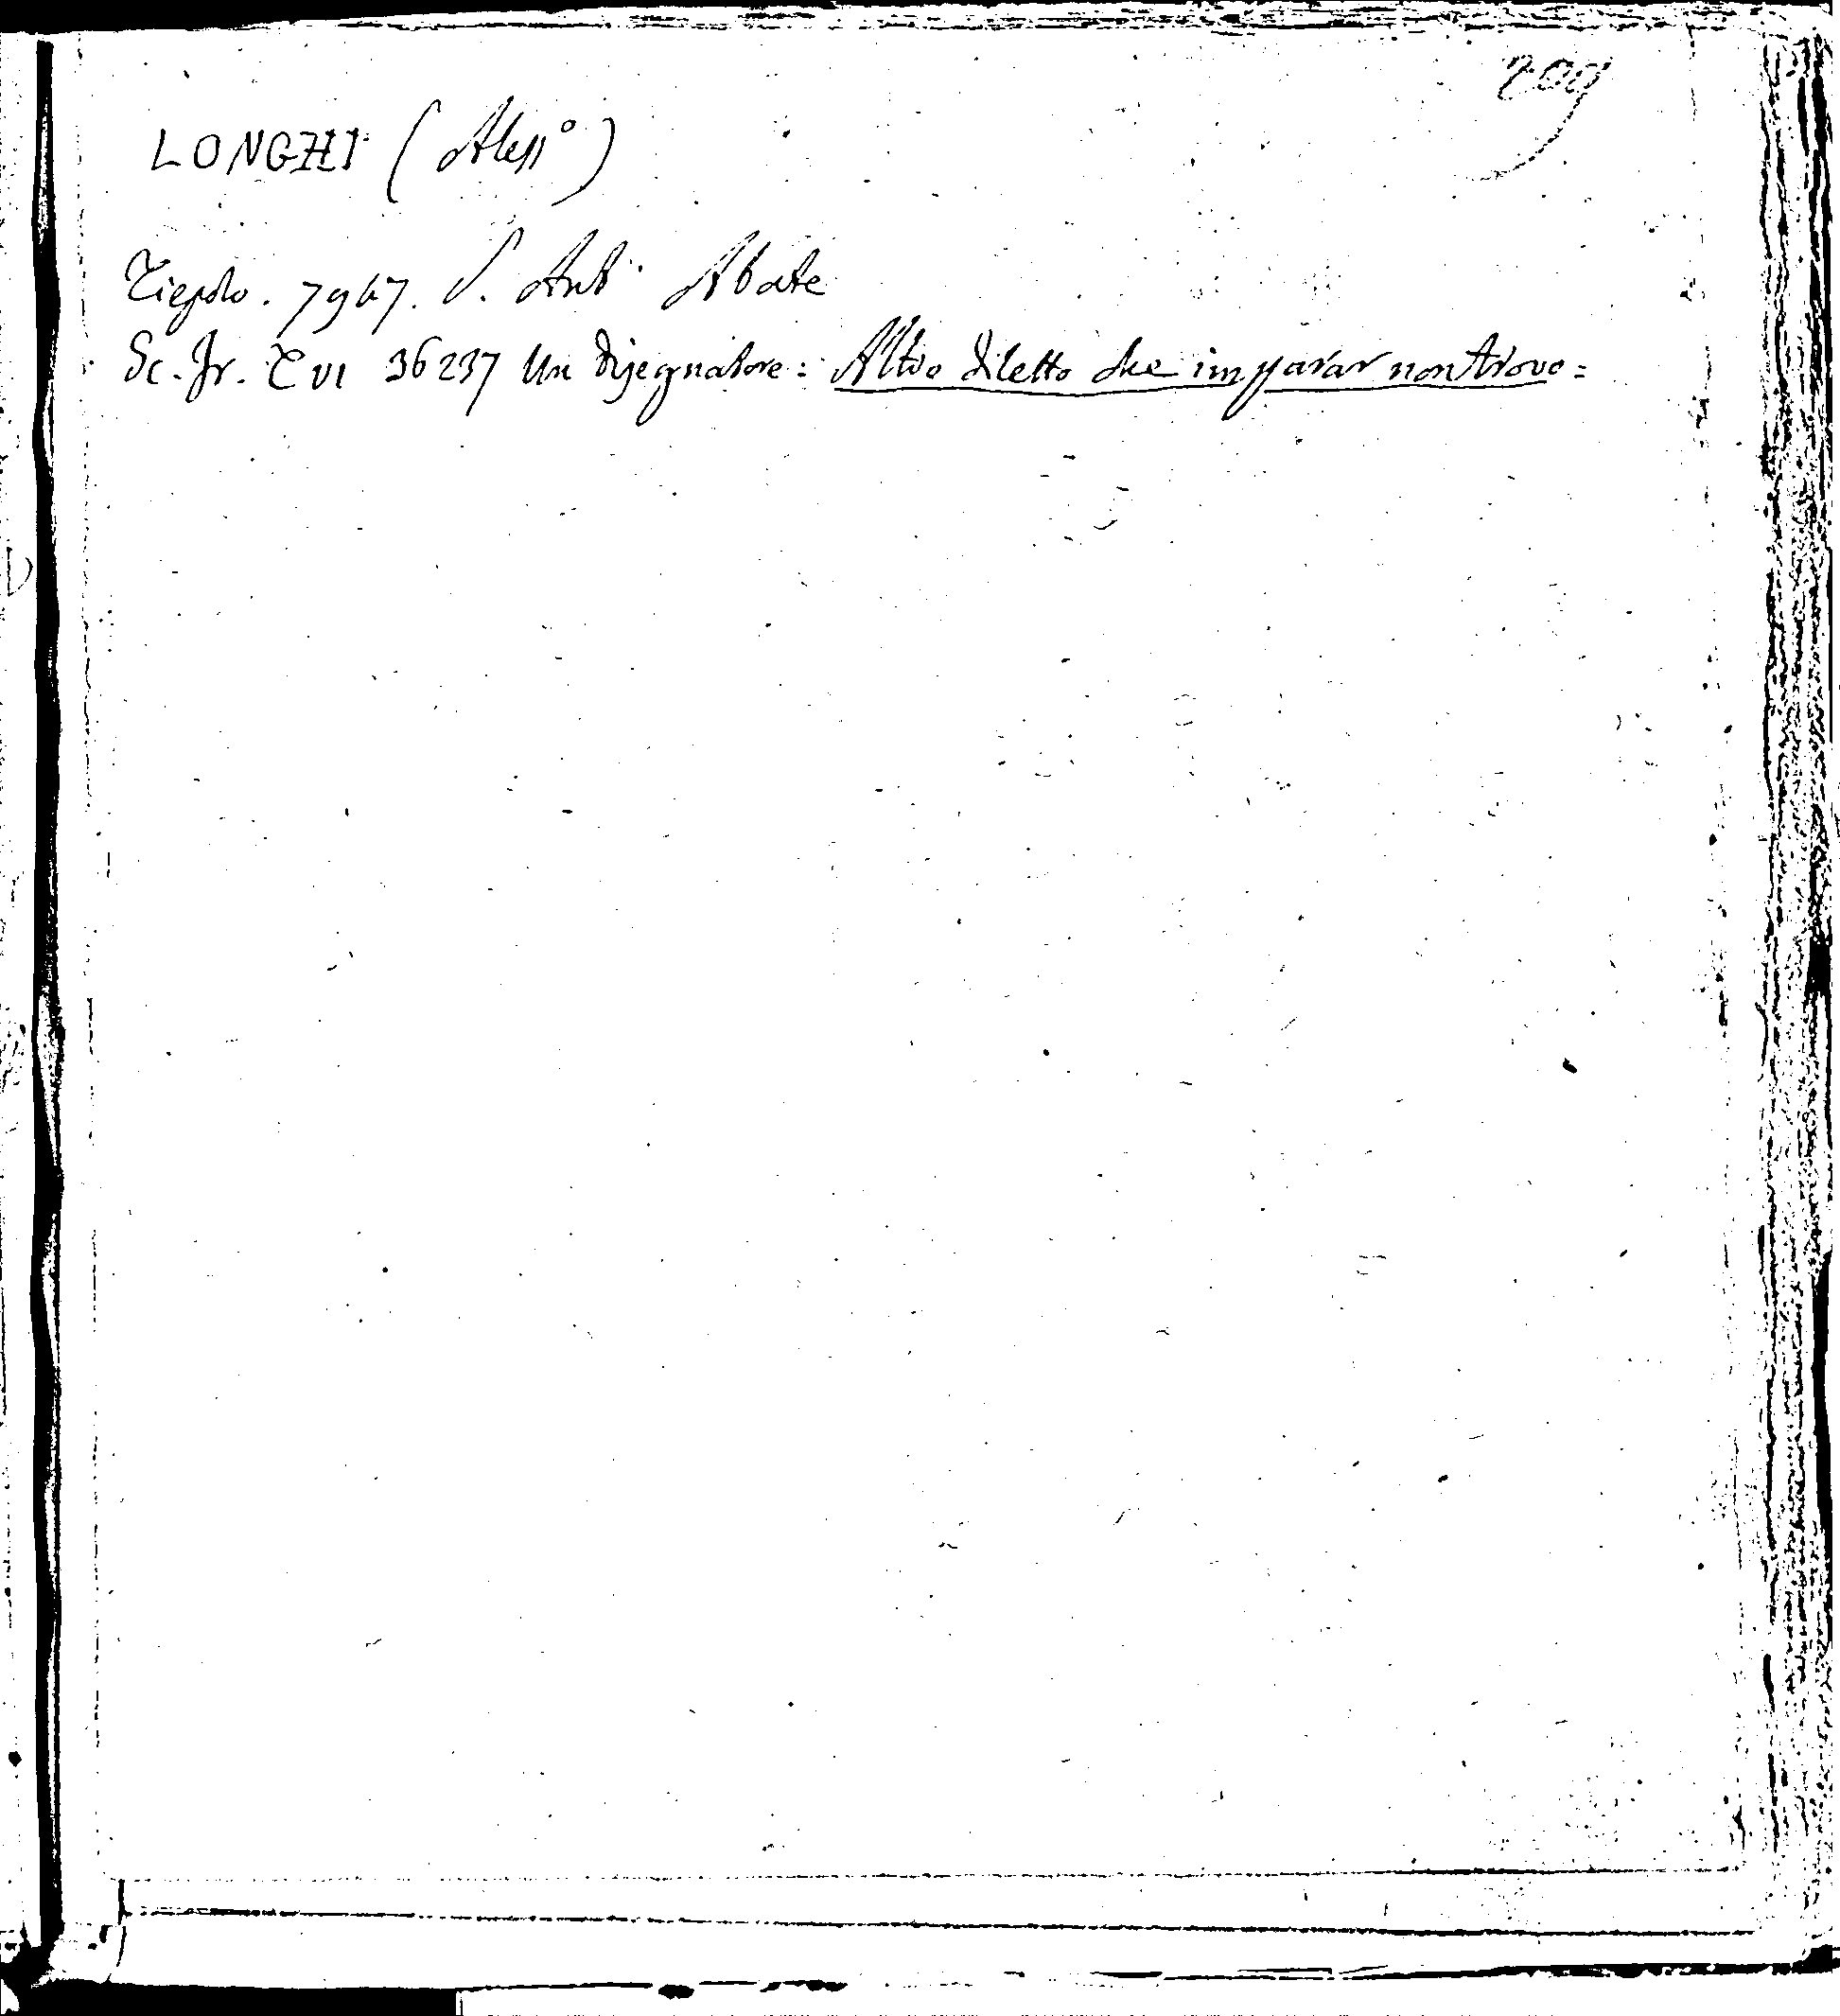 209
LONGHI (Aless°)
Tiepolo. 7967. S. Ant° Abate
Sc. Fr. T VI 36237 Un disegnatore: Altro diletto che imparar non trovo=